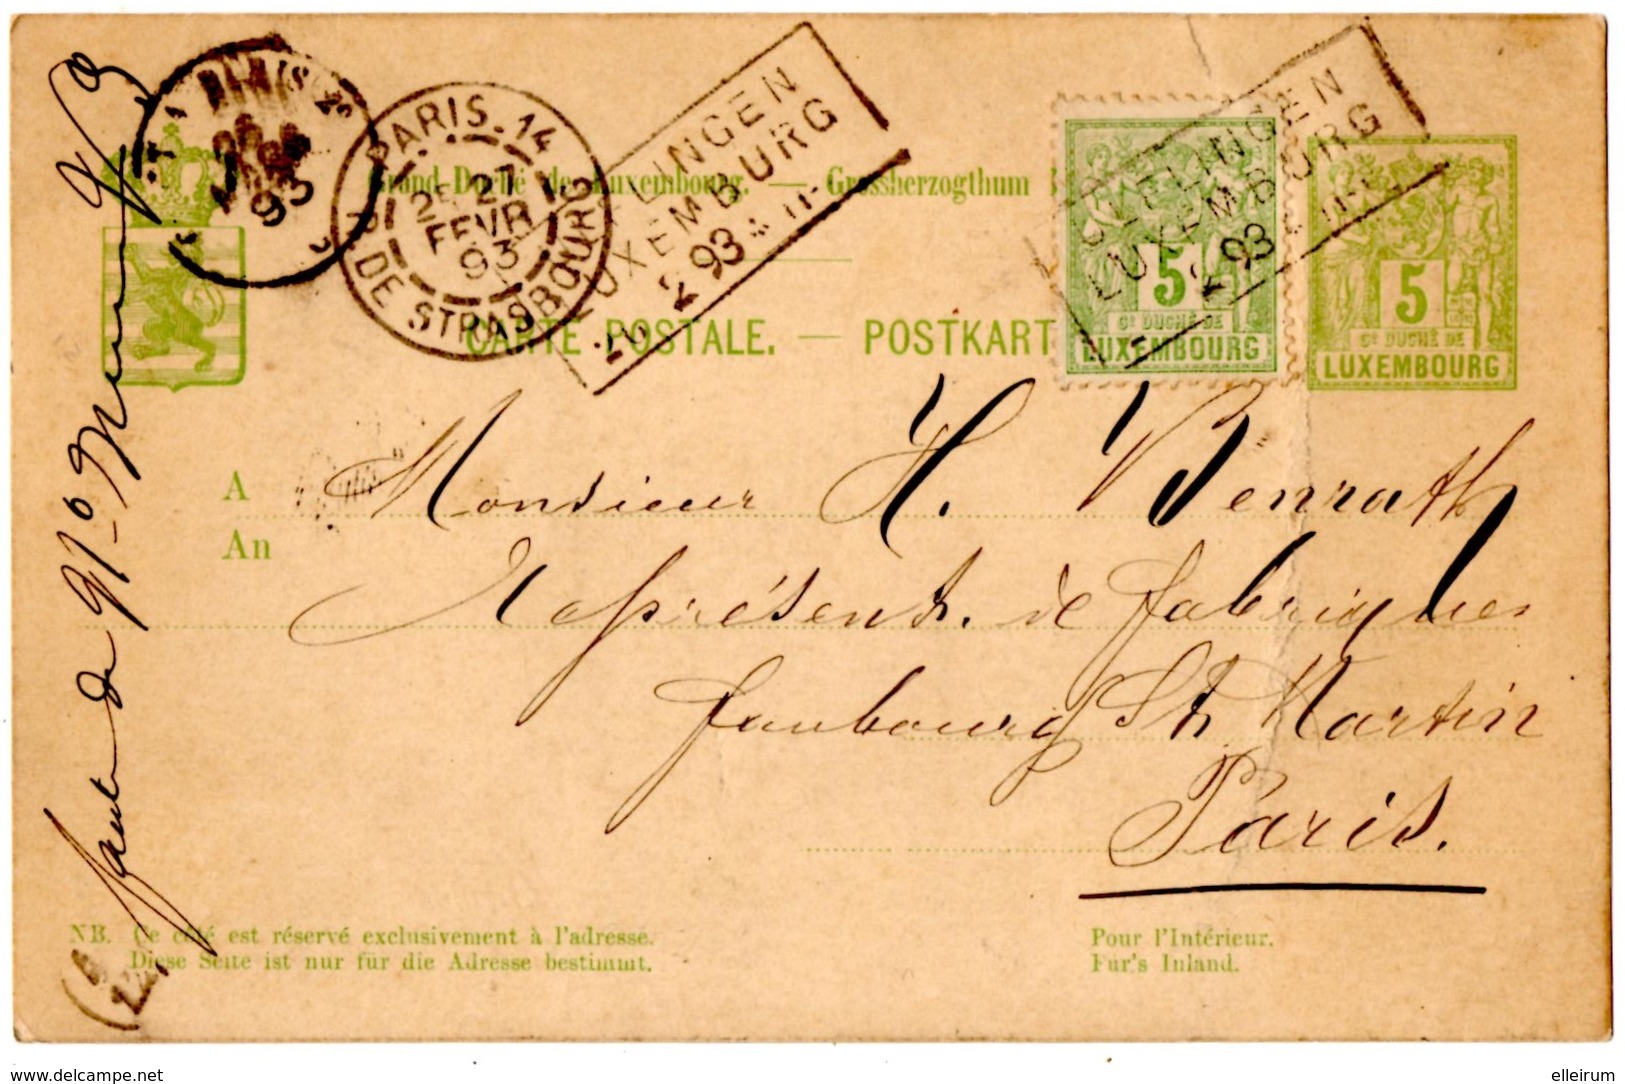 Grand-Duché de Luxembourg. — Grossherzogthum
CARTE POSTALE. — POSTKART
PARIS. 14
2E 27
FEVR
93
R. DE STRASBOURG
PARIS
93
LINGEN
LUXEMBOURG
2 93
ULFLINGEN
LUXEMBOURG
2 93
5
Gᴅ DUCHÉ DE
LUXEMBOURG
5
Gᴅ DUCHÉ DE
LUXEMBOURG
A
An
Monsieur H. Benrath
Représent. de fabriques
faubourg St Martin
Paris.
faute de No
NB. Ce côté est réservé exclusivement à l'adresse.
Diese Seite ist nur für die Adresse bestimmt.
Pour l'Intérieur.
Fur's Inland.
delcampe.net
elleirum